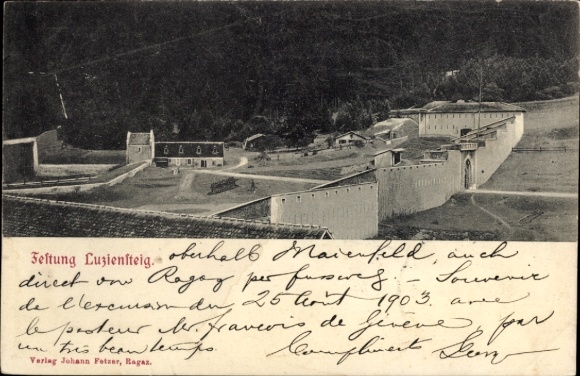 Festung Luziensteig. oberhalb Maienfeld, auch
direct von Ragaz per fussweg – Souvenir
de l'excursion du 25 Août 1903 avec
le pasteur Mr. francois de Genève, par
un très beau temps. Compliments
Verlag Johann Fetzer, Ragaz.